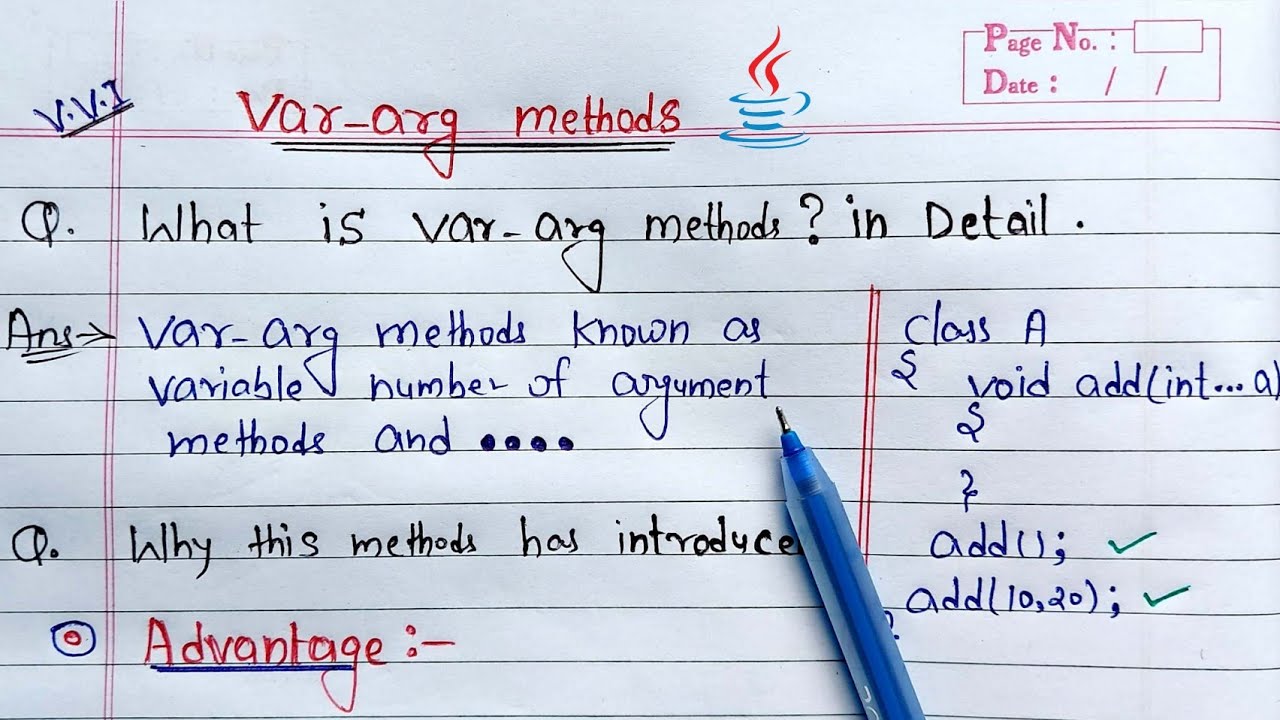 Page No. :
Date : / /
V.V.I
Var-arg methods
Q. What is var-arg methods? in Detail.
Ans→ Var-arg methods known as
variable number of argument
methods and ....
class A
{ void add(int...a)
{
}
add();
✓
add(10,20);
✓
}
Q. Why this methods has introduce
Advantage :-